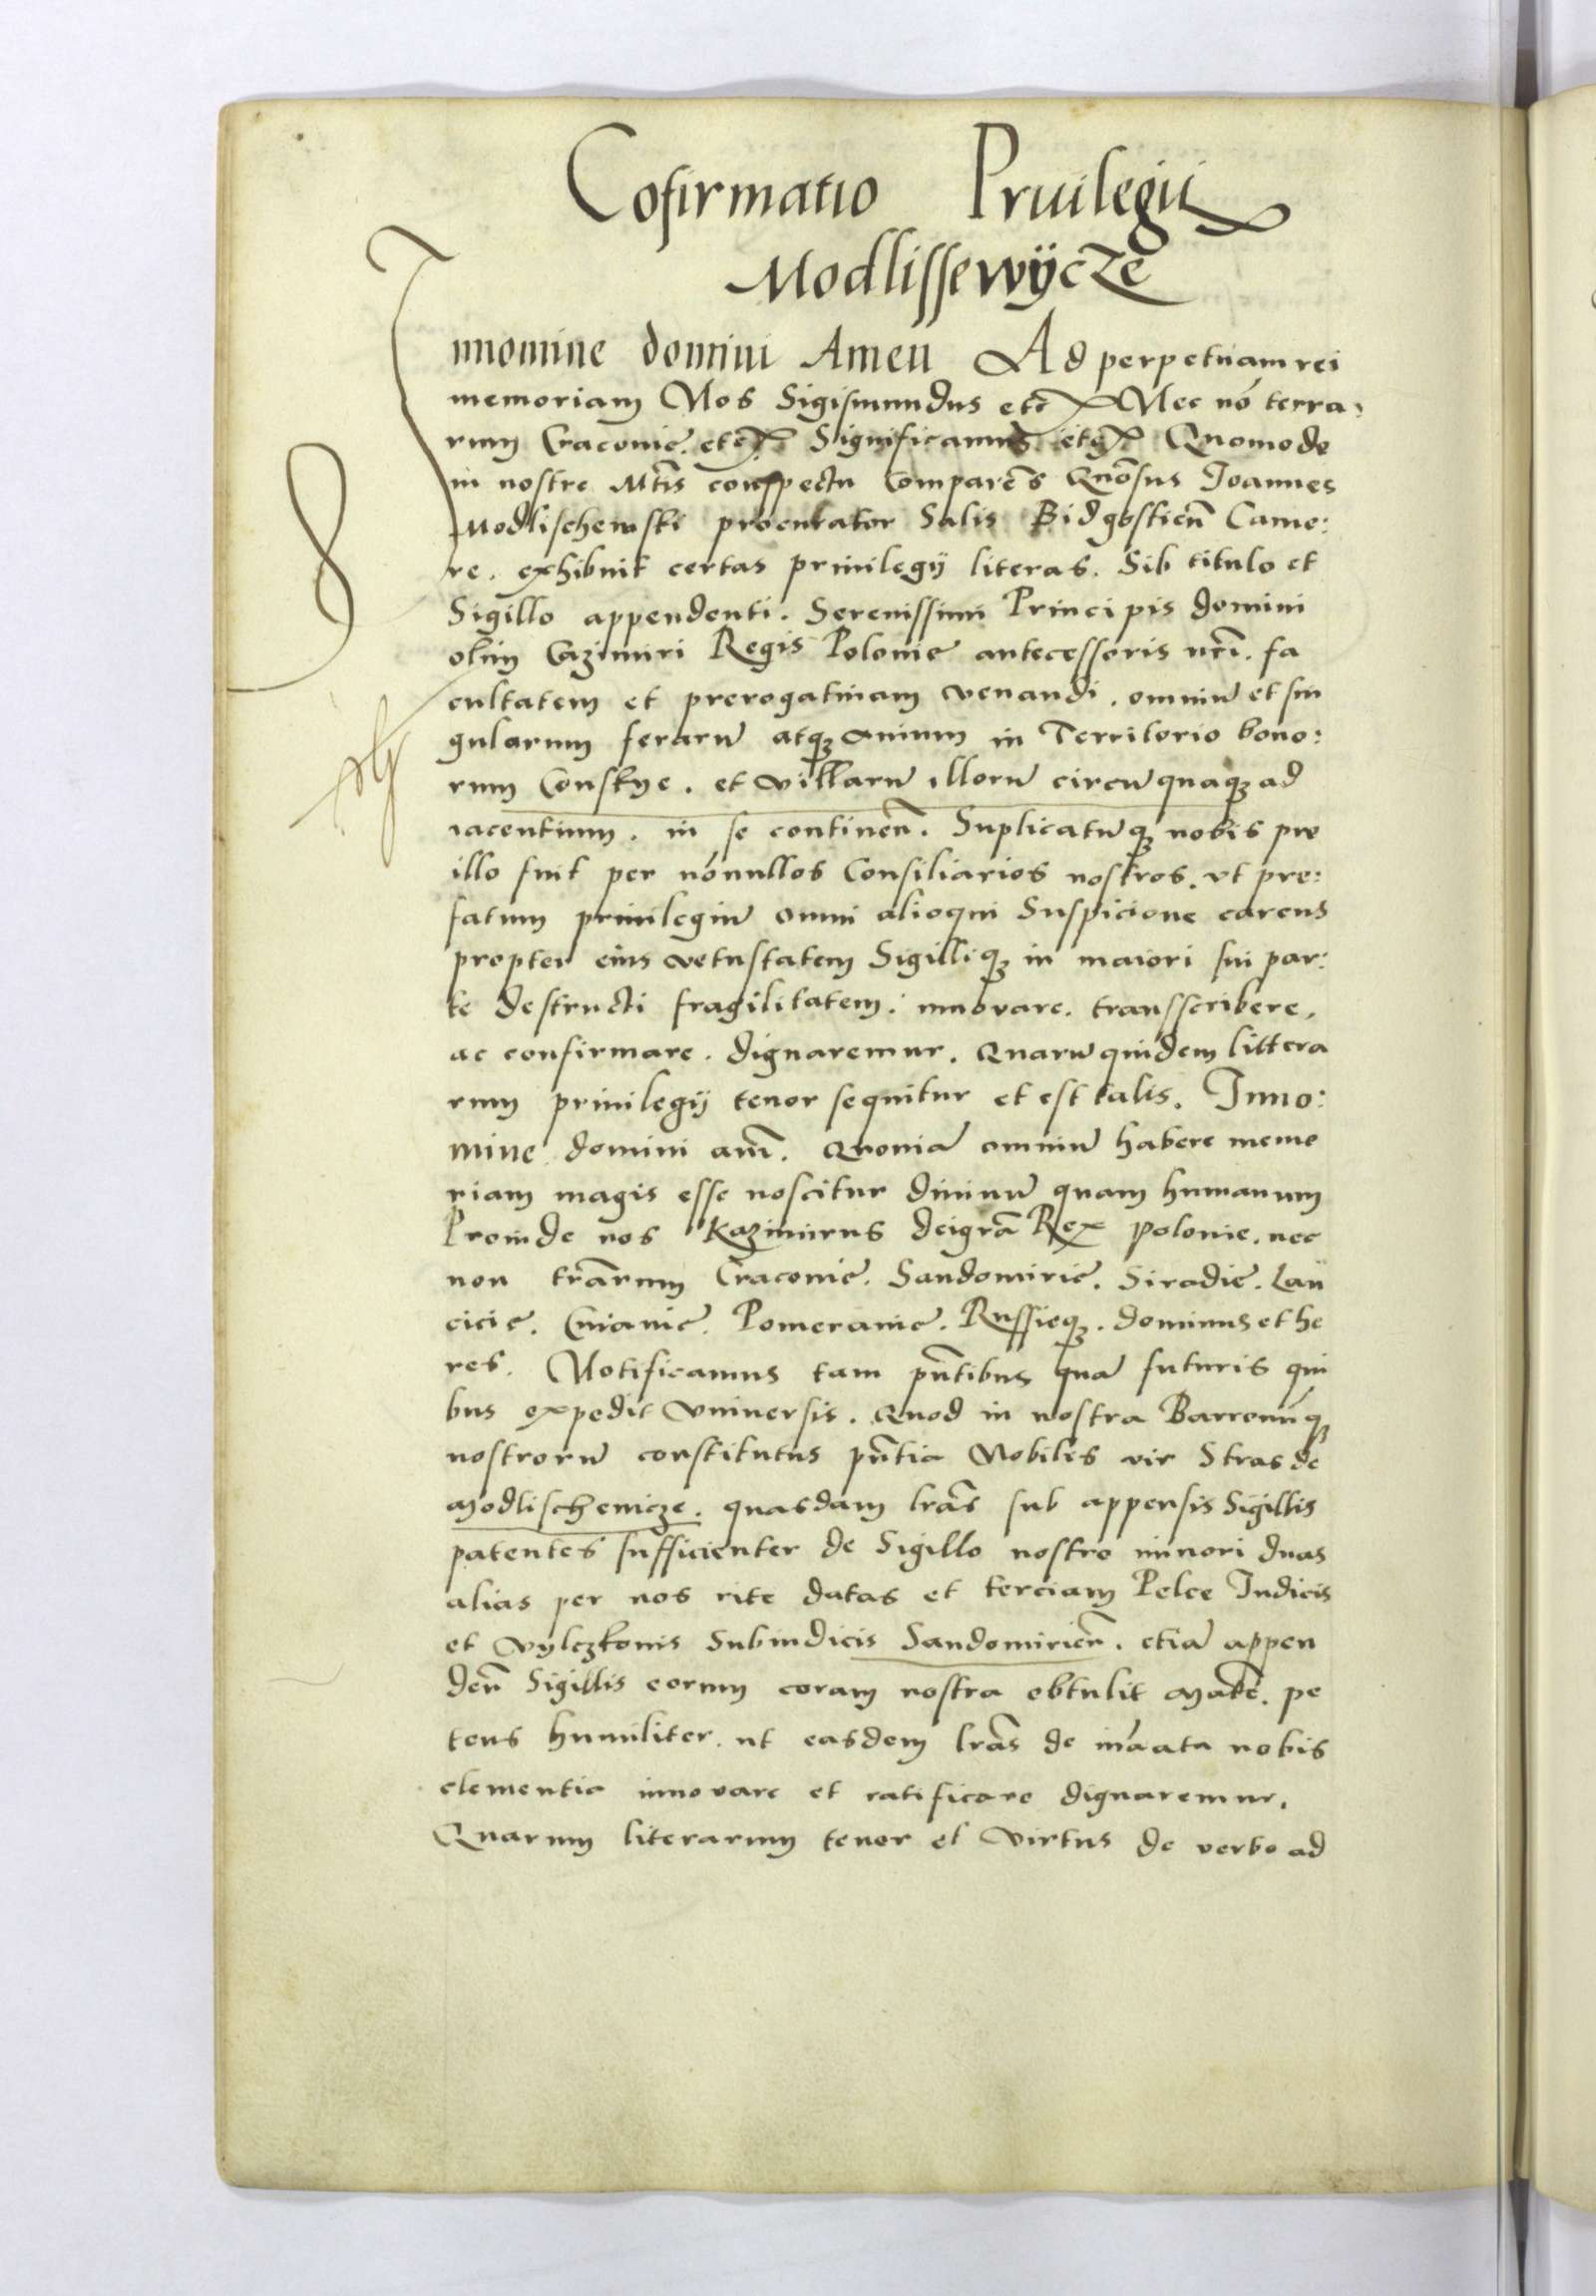 Cofirmatio Pruilegii
Modlissewÿcze
Innomine domini Amen Ad perpetuam rei
memoriam Nos Sigismundus etc Nec nō terra:
rum Cracovie. etc. Significamus etc Quomodo
in nostre Mtīs conspectu comparēs Gnōsus Joannes
Modlischewski procurator Salis Bidgostien̄ Came:
re. exhibuit certas privilegij literas. Sib titulo et
Sigillo appendenti. Serenissimi Principis domini
olim Cazimiri Regis Polonie antecessoris nrī. fa
cultatem et prerogativam venandi. omniū et sin
gularum ferarū atqz avium in Territorio bono:
rum Conskye. et villarū illorū circūquaqz ad
iacentium. in se continen̄. Suplicatūqz nobis pro
illo fuit per nōnullos Consiliarios nostros. vt pre:
fatum privilegiū omni alioqui Suspicione carens
propter eius vetustatem Sigilliqz in maiori sui par:
te destructi fragilitatem. innovare. transscribere,
ac confirmare. dignaremur. Quarū quidem littera
rum privilegij tenor sequitur et est talis. Inno:
mine domini amē. Quoniā omniū habere memo
riam magis esse noscitur divinū quam humanum
Proinde nos Kazimirus deigrā Rex Polonie. nec
non trārum Cracovie. Sandomirie. Siradie. Lan
cicie. Cuiavie. Pomeranie. Russieqz. dominus et he
res. Notificamus tam pn̄tibus quā futuris qui
bus expedit vniversis. Quod in nostra Baronūqz
nostrorū constitutus pn̄tia Nobilis vir Stras de
Modlischewicze. quasdam lrās sub appensis Sigillis
patentes sufficienter de Sigillo nostro minori duas
alias per nos rite datas et terciam Pelce Iudicis
et Vylczkonis Subiudicis Sandomirien̄. etiā appen
den̄ Sigillis eorum coram nostra obtulit Matē. pe
tens humiliter. ut easdem lrās de innata nobis
clementia innovare et ratificare dignaremur.
Quarum literarum tenor et virtus de verbo ad